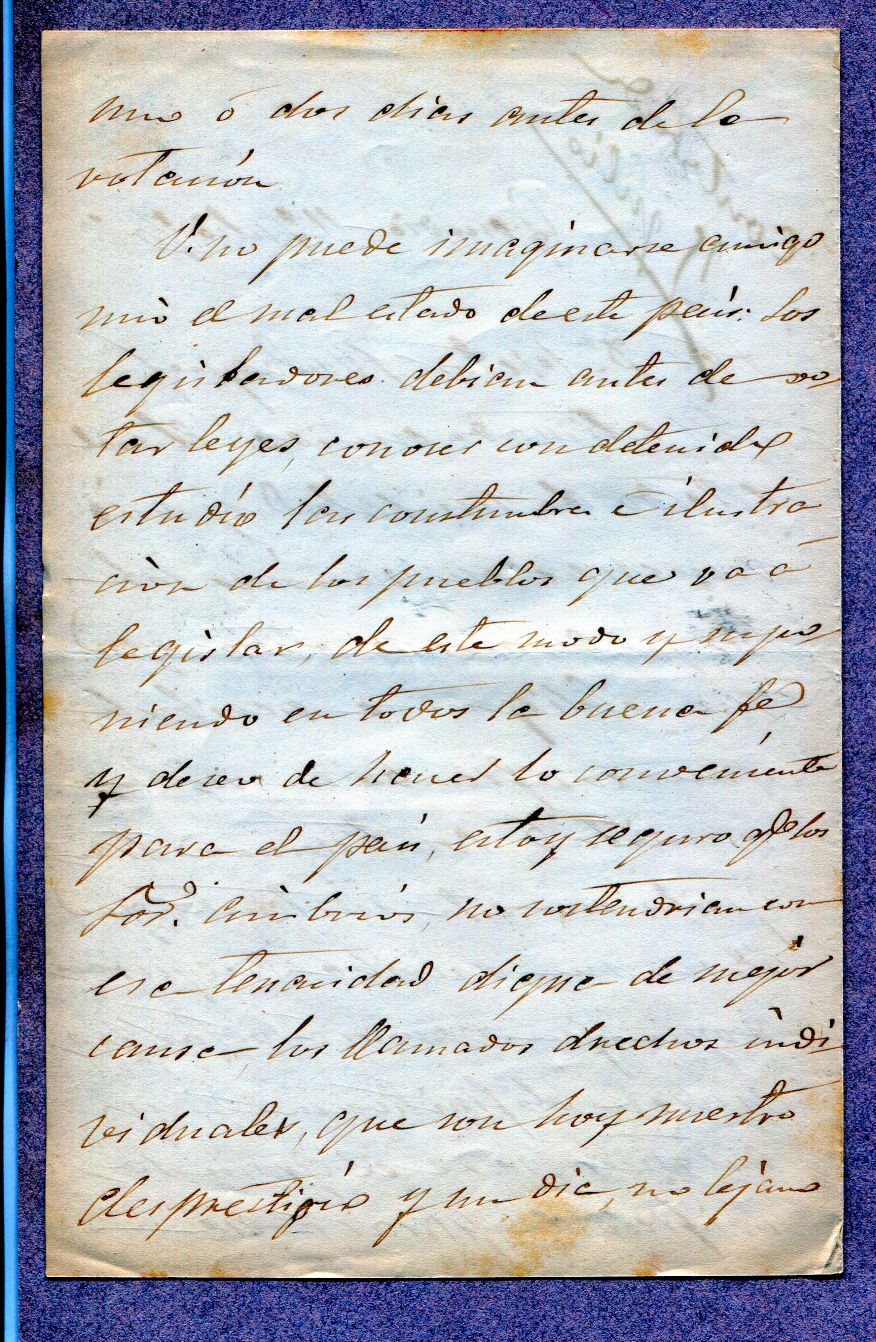 uno ó dos dias antes de la
votación
V. no puede imaginarse amigo
mio el mal estado de este país: Los
legisladores debian antes de vo
tar leyes, conocer con detenido
estudio las constumbres é ilustra
ción de los pueblos que va á
legislar, de este modo y supo
niendo en todos la buena fé
y deseo de hacer lo conveniente
para el país, estoy seguro qe los
Sres. cimbrios, no sostendrian con
esa tenacidad digna de mejor
causa los llamados drechos indi
viduales, que son hoy nuestro
desprestigio y un dia, no lejano